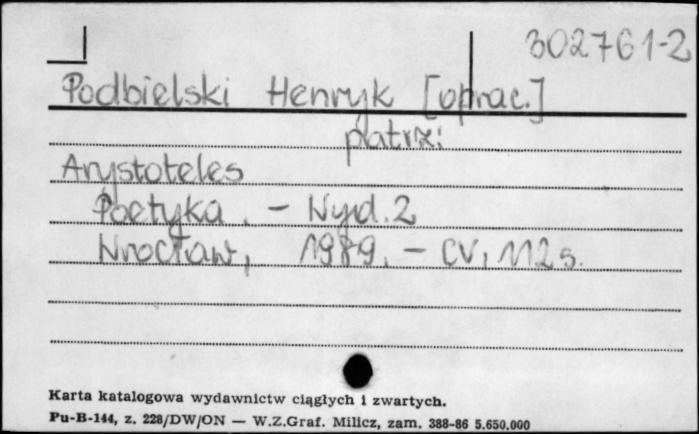 302761-2
Podbielski Henryk [oprac.]
patrz:
Arystoteles
Poetyka. - Wyd. 2
Wrocław, 1989. - CV, 112 s.
Karta katalogowa wydawnictw ciągłych i zwartych.
Pu-B-144, z. 228/DW/ON — W.Z.Graf. Milicz, zam. 388-86 5.650.000